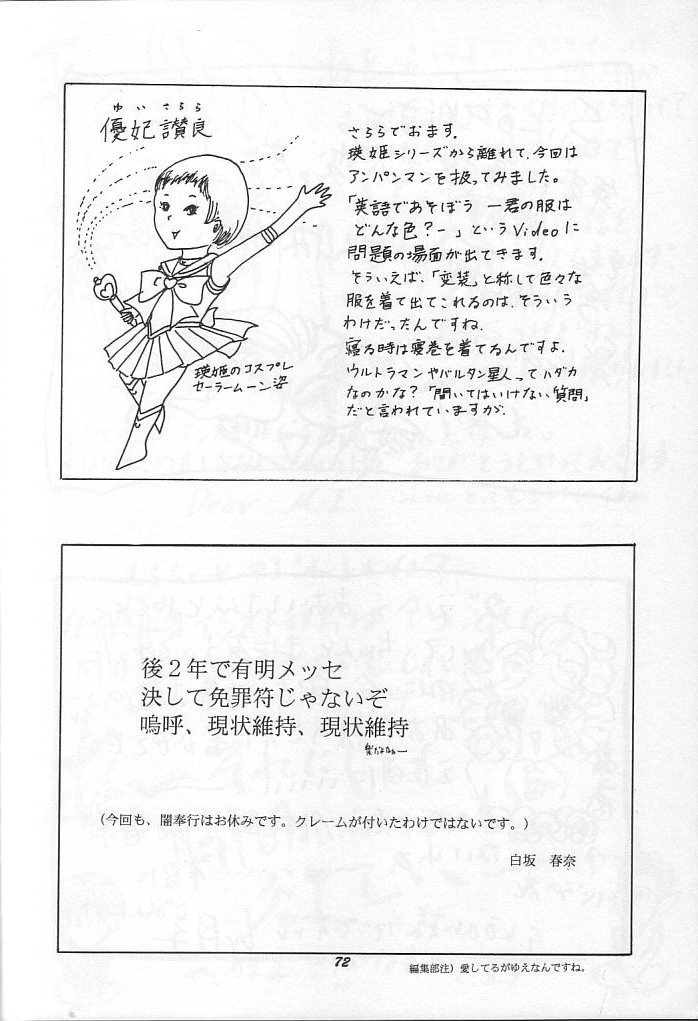 ゆいさらら
優妃讃良
さららでおます。
瑛姫シリーズから離れて、今回は
アンパンマンを扱ってみました。
「英語であそぼう ー君の服は
どんな色?ー」というVideoに
問題の場面が出てきます。
そういえば、「変装」と称して色々な
服を着て出てこれるのは、そういう
わけだったんですね。
寝る時は寝巻を着てるんですよ。
ウルトラマンやバルタン星人ってハダカ
なのかな?「聞いてはいけない質問」
だと言われていますが。
瑛姫のコスプレ
セーラームーン姿
後2年で有明メッセ
決して免罪符じゃないぞ
嗚呼、現状維持、現状維持
楽だなぁー
(今回も、闇奉行はお休みです。クレームが付いたわけではないです。)
白坂 春奈
72
編集部注)愛してるがゆえなんですね。